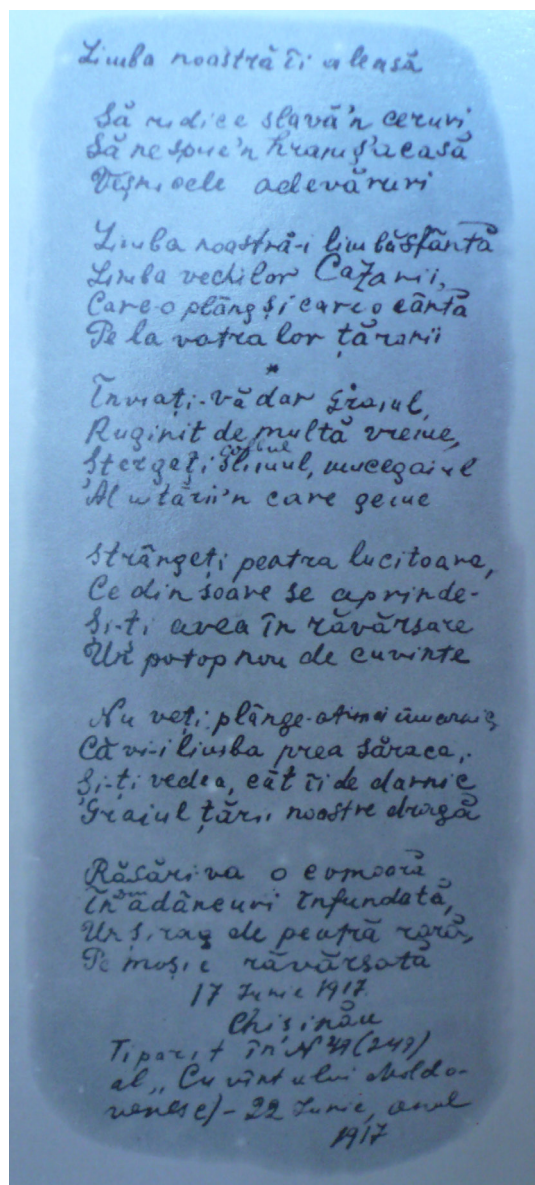 Limba noastră îi aleasă
Să ridice slavă'n ceruri
Să ne spue'n hram ș'acasă
Veșnicele adevăruri
Limba noastră-i limbă sfântă
Limba vechilor Cazanii,
Care-o plâng și care o cântă
Pe la vatra lor țăranii
*
Înviați-vă dar graiul,
Ruginit de multă vreme,
Ștergeți slimul, mucegaiul
Al uitării'n care geme
Strângeți peatra lucitoare,
Ce din soare se aprinde-
Și-ți avea în răvărsare
Un potop nou de cuvinte
Nu veți plânge-atunci amarnic
Că vi-i limba prea săraca,
Și-ți vedea, cât îi de darnic
Graiul țării noastre dragă
Răsări-va o comoară
În adâncuri înfundată,
Un șirag de peatră rară,
Pe moșie răvărsată
17 Iunie 1917
Chișinău
Tiparit în N (249)
al „Cuvîntului Moldo-
venesc) - 22 Iunie, anul
1917